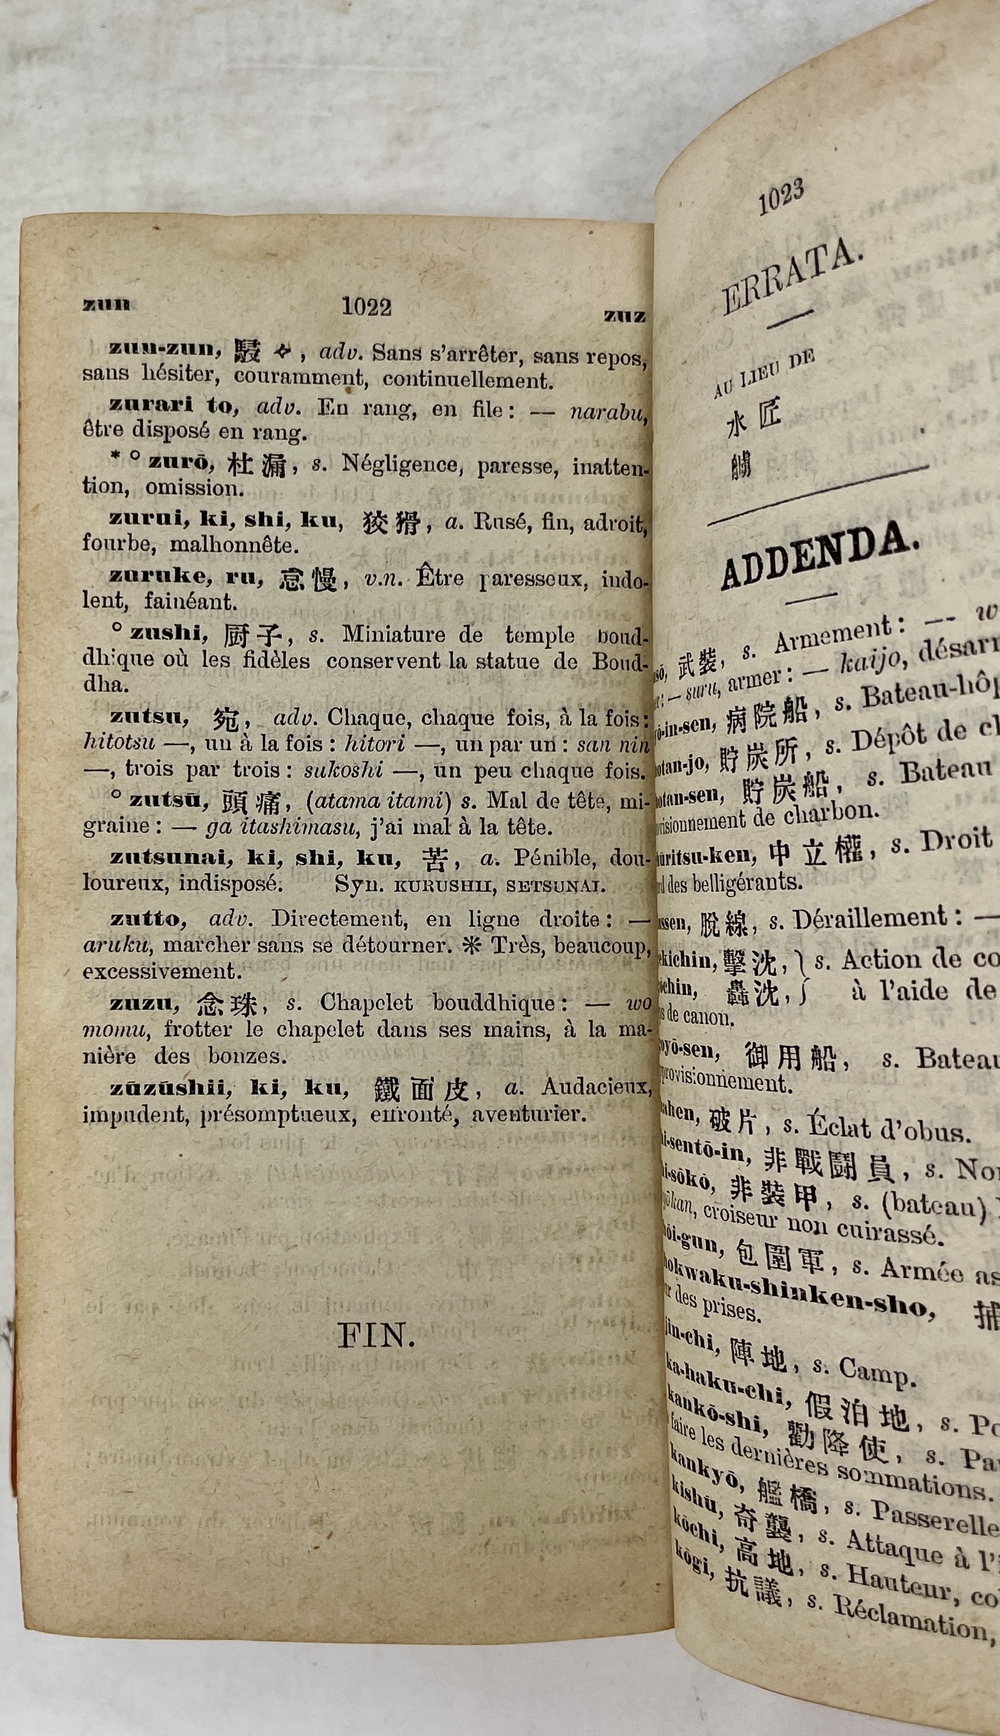 zun 1022 zuz
zun-zun, 駸々, adv. Sans s'arrêter, sans repos,
sans hésiter, couramment, continuellement.
zurari to, adv. En rang, en file: — narabu,
être disposé en rang.
*° zurō, 杜漏, s. Négligence, paresse, inatten-
tion, omission.
zurui, ki, shi, ku, 狡猾, a. Rusé, fin, adroit,
fourbe, malhonnête.
zuruke, ru, 怠慢, v.n. Être paresseux, indo-
lent, fainéant.
° zushi, 厨子, s. Miniature de temple boud-
dhique où les fidèles conservent la statue de Boud-
dha.
zutsu, 宛, adv. Chaque, chaque fois, à la fois:
hitotsu —, un à la fois: hitori —, un par un: san nin
—, trois par trois: sukoshi —, un peu chaque fois.
° zutsū, 頭痛, (atama itami) s. Mal de tête, mi-
graine: — ga itashimasu, j'ai mal à la tête.
zutsunai, ki, shi, ku, 苦, a. Pénible, dou-
loureux, indisposé. Syn. KURUSHII, SETSUNAI.
zutto, adv. Directement, en ligne droite: —
aruku, marcher sans se détourner. ※ Très, beaucoup,
excessivement.
zuzu, 念珠, s. Chapelet bouddhique: — wo
momu, frotter le chapelet dans ses mains, à la ma-
nière des bonzes.
zūzūshii, ki, ku, 鐵面皮, a. Audacieux,
impudent, présomptueux, effronté, aventurier.
FIN.
1023
ERRATA.
AU LIEU DE
水匠
ADDENDA.
武裝, s. Armement: —
suru, armer: — kaijo,
in-sen, 病院船, s.
otan-jo, 貯炭所, s. Dépôt de
otan-sen, 貯炭船, s. Bateau
visionnement de charbon.
ūritsu-ken, 中立權, s. Droit
des belligérants.
ssen, 脫線, s. Déraillement: —
kichin, 擊沈, } s. Action de
chin, 轟沈, } à l'aide de
de canon.
oyō-sen, 御用船, s. Bateau
provisionnement.
ahen, 破片, s. Éclat d'obus.
i-sentō-in, 非戰鬪員, s.
i-sōkō, 非裝甲, s. (bateau)
kan, croiseur non cuirassé.
ōi-gun, 包圍軍, s. Armée
okwaku-shinken-sho, 捕
des prises.
jin-chi, 陣地, s. Camp.
ka-haku-chi, 假泊地, s.
kankō-shi, 勸降使, s.
faire les dernières sommations.
kankyō, 艦橋, s. Passerelle
kishū, 奇襲, s. Attaque à
kōchi, 高地, s. Hauteur,
kōgi, 抗議, s. Réclamation,